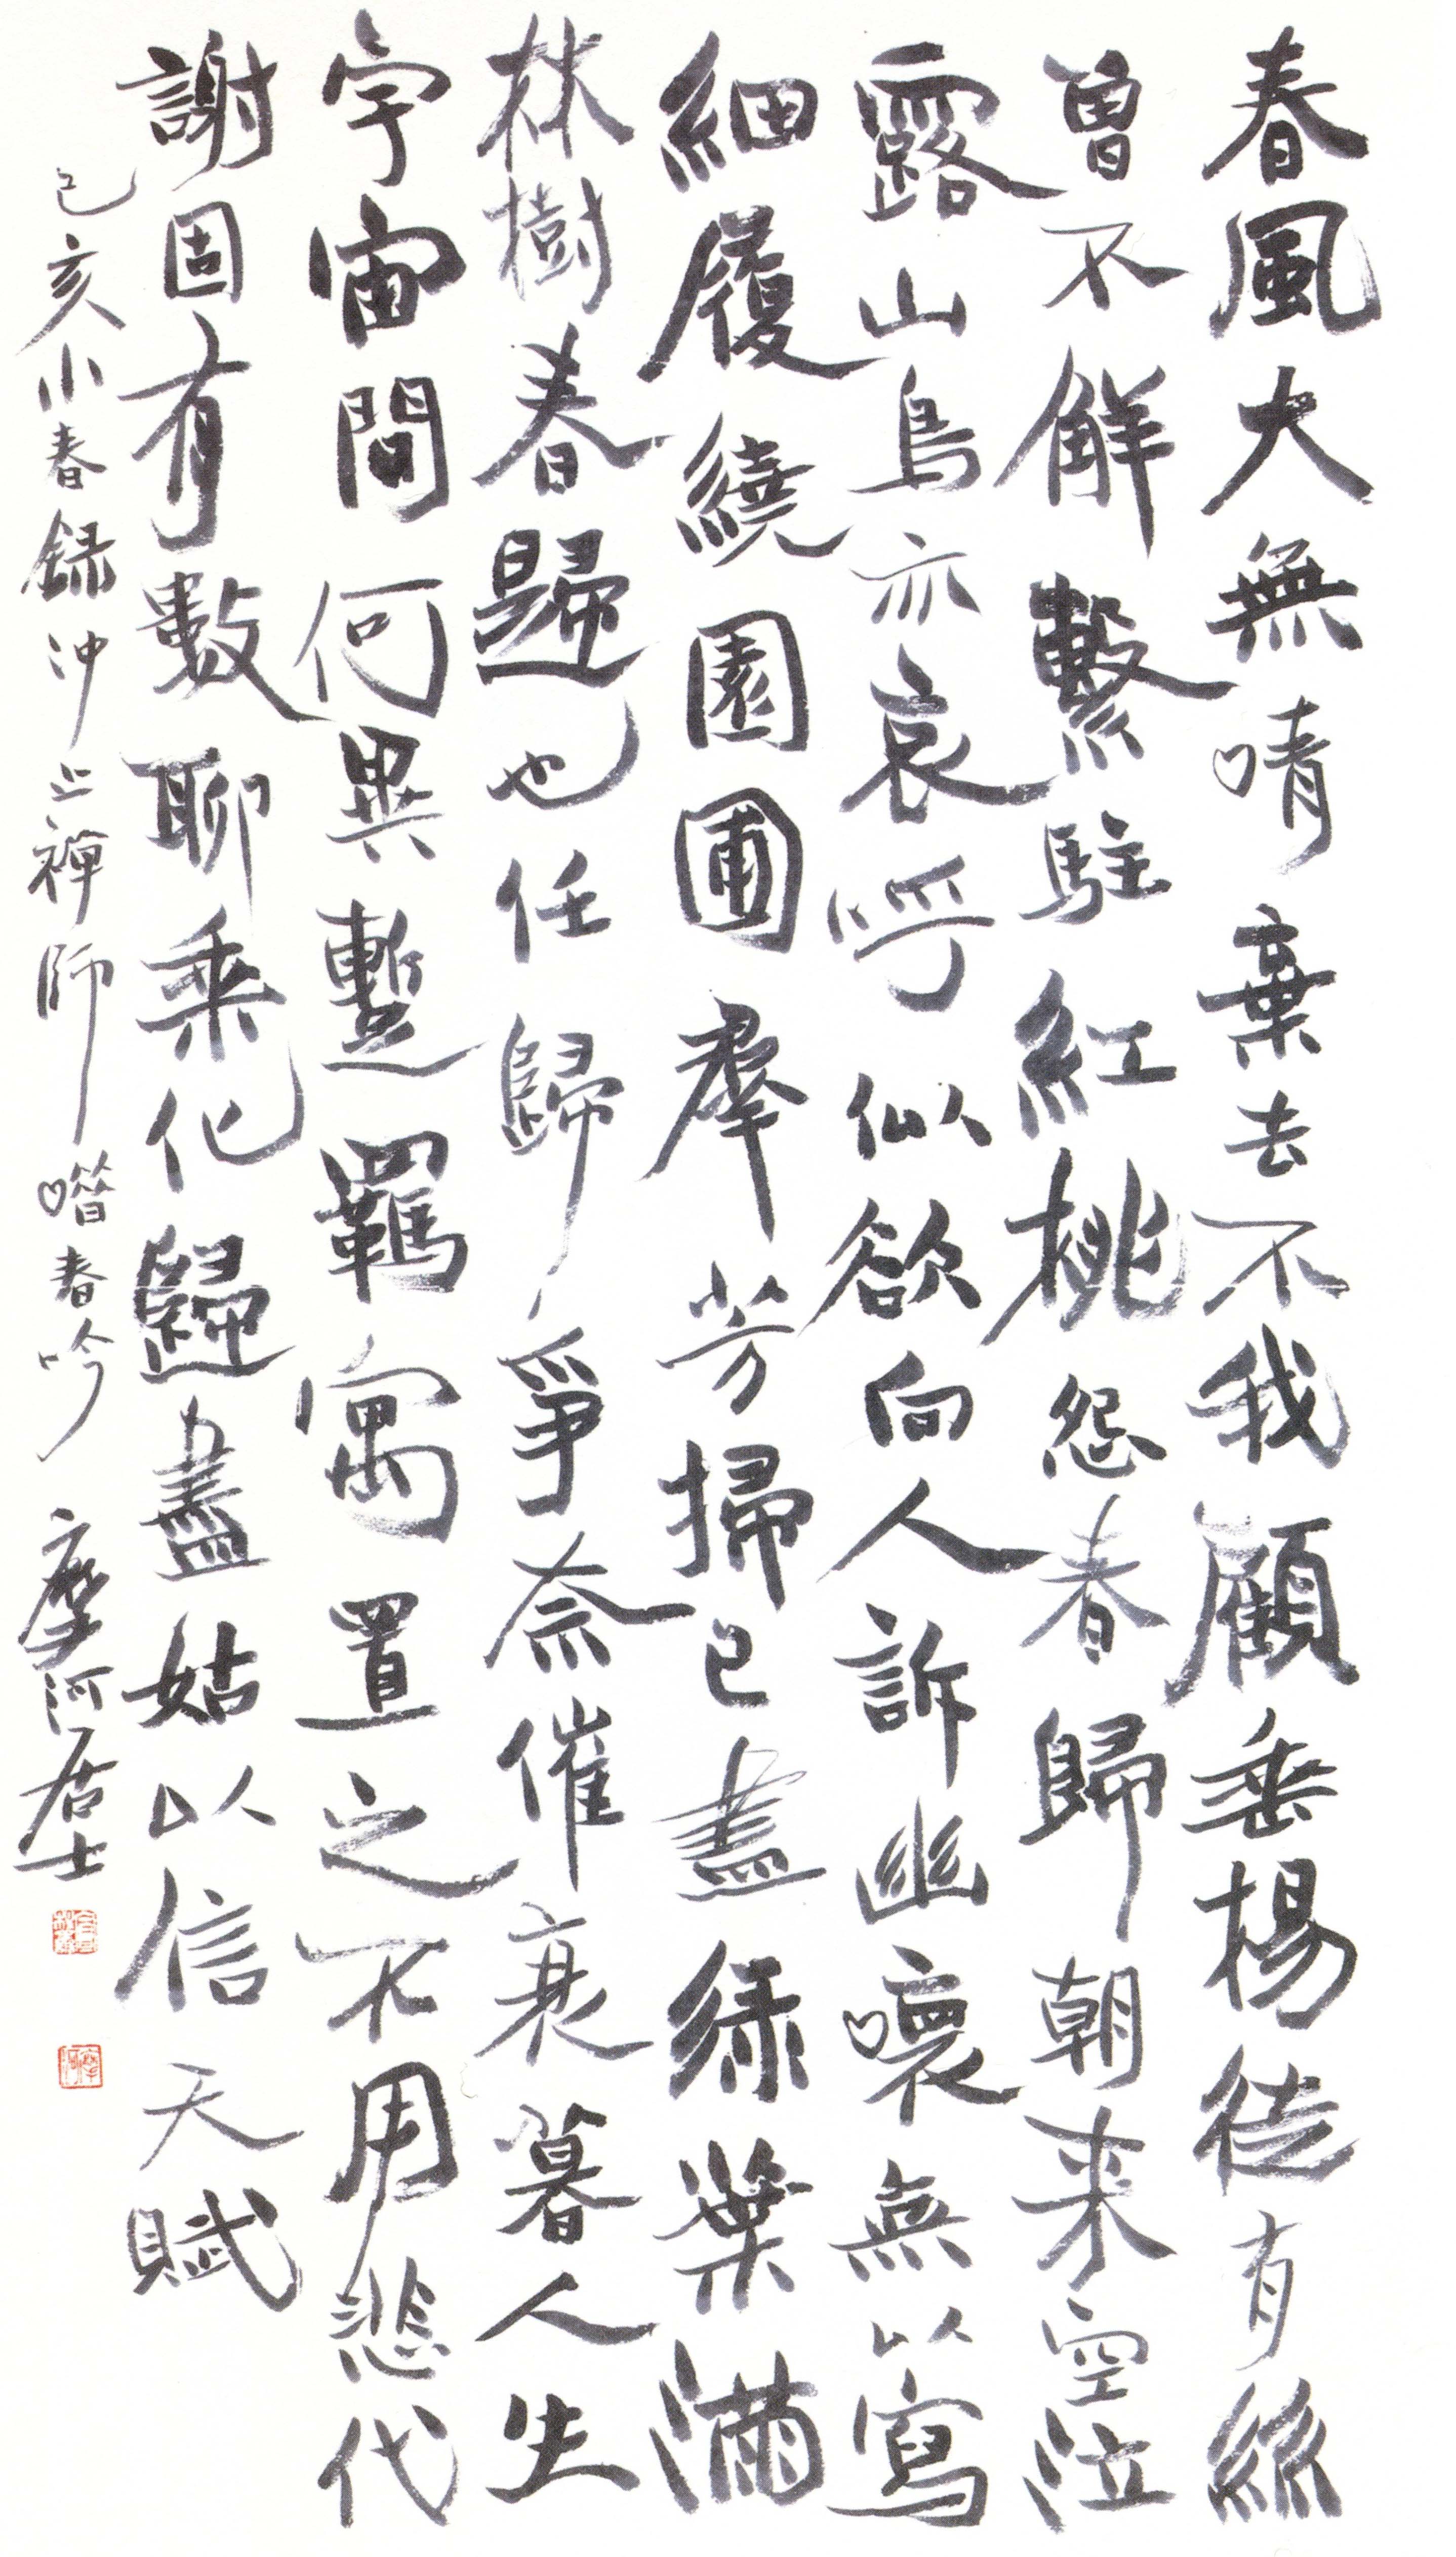 春風大無情棄去不我顧垂楊徒有絲
曾不解繫駐紅桃怨春歸朝來空泣
露山鳥亦哀呼似欲向人訴幽懷無以寫
細履繞園圃羣芳掃已盡綠葉滿
林樹春歸也任歸爭奈催衰暮人生
宇宙間何異暫羈寓置之不用悲代
謝固有數聊乘化歸盡姑以信天賦
己亥小春録沖止禪師惜春吟 摩河居士